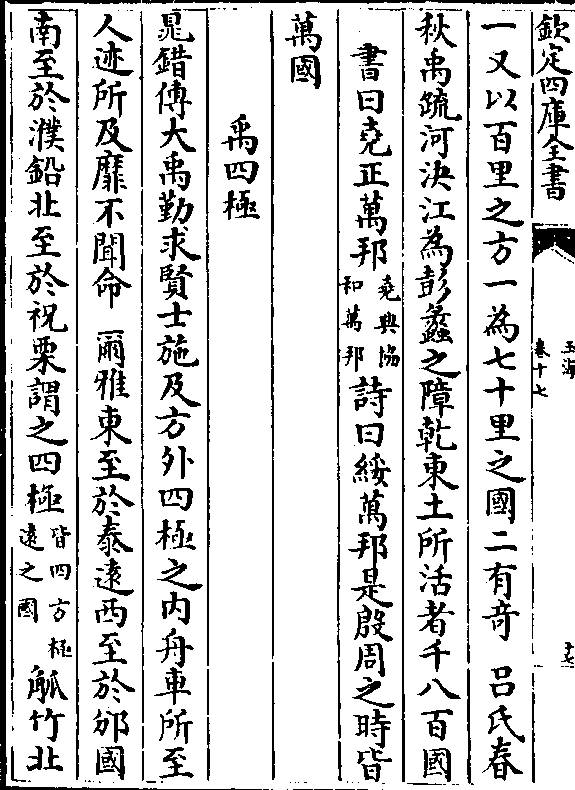 欽定四庫全書
玉海
卷十七
十七
一又以百里之方一為七十里之國二有竒　呂氏春
秋禹疏河決江為彭蠡之障乾東土所活者千八百國
書曰堯正萬邦堯典協和萬邦詩曰綏萬邦是殷周之時皆
萬國
禹四極
晁錯傳大禹勤求賢士施及方外四極之内舟車所至
人迹所及靡不聞命　爾雅東至於泰遠西至於邠國
南至於濮鈆北至於祝栗謂之四極皆四方極遠之國　觚竹北